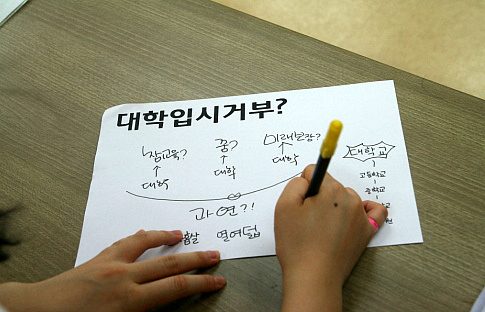 대학입시거부?
참교육? 꿈? 미래보장?
대학 대학 대학
과연?!
열여덟
대학교
고등학교
중학교